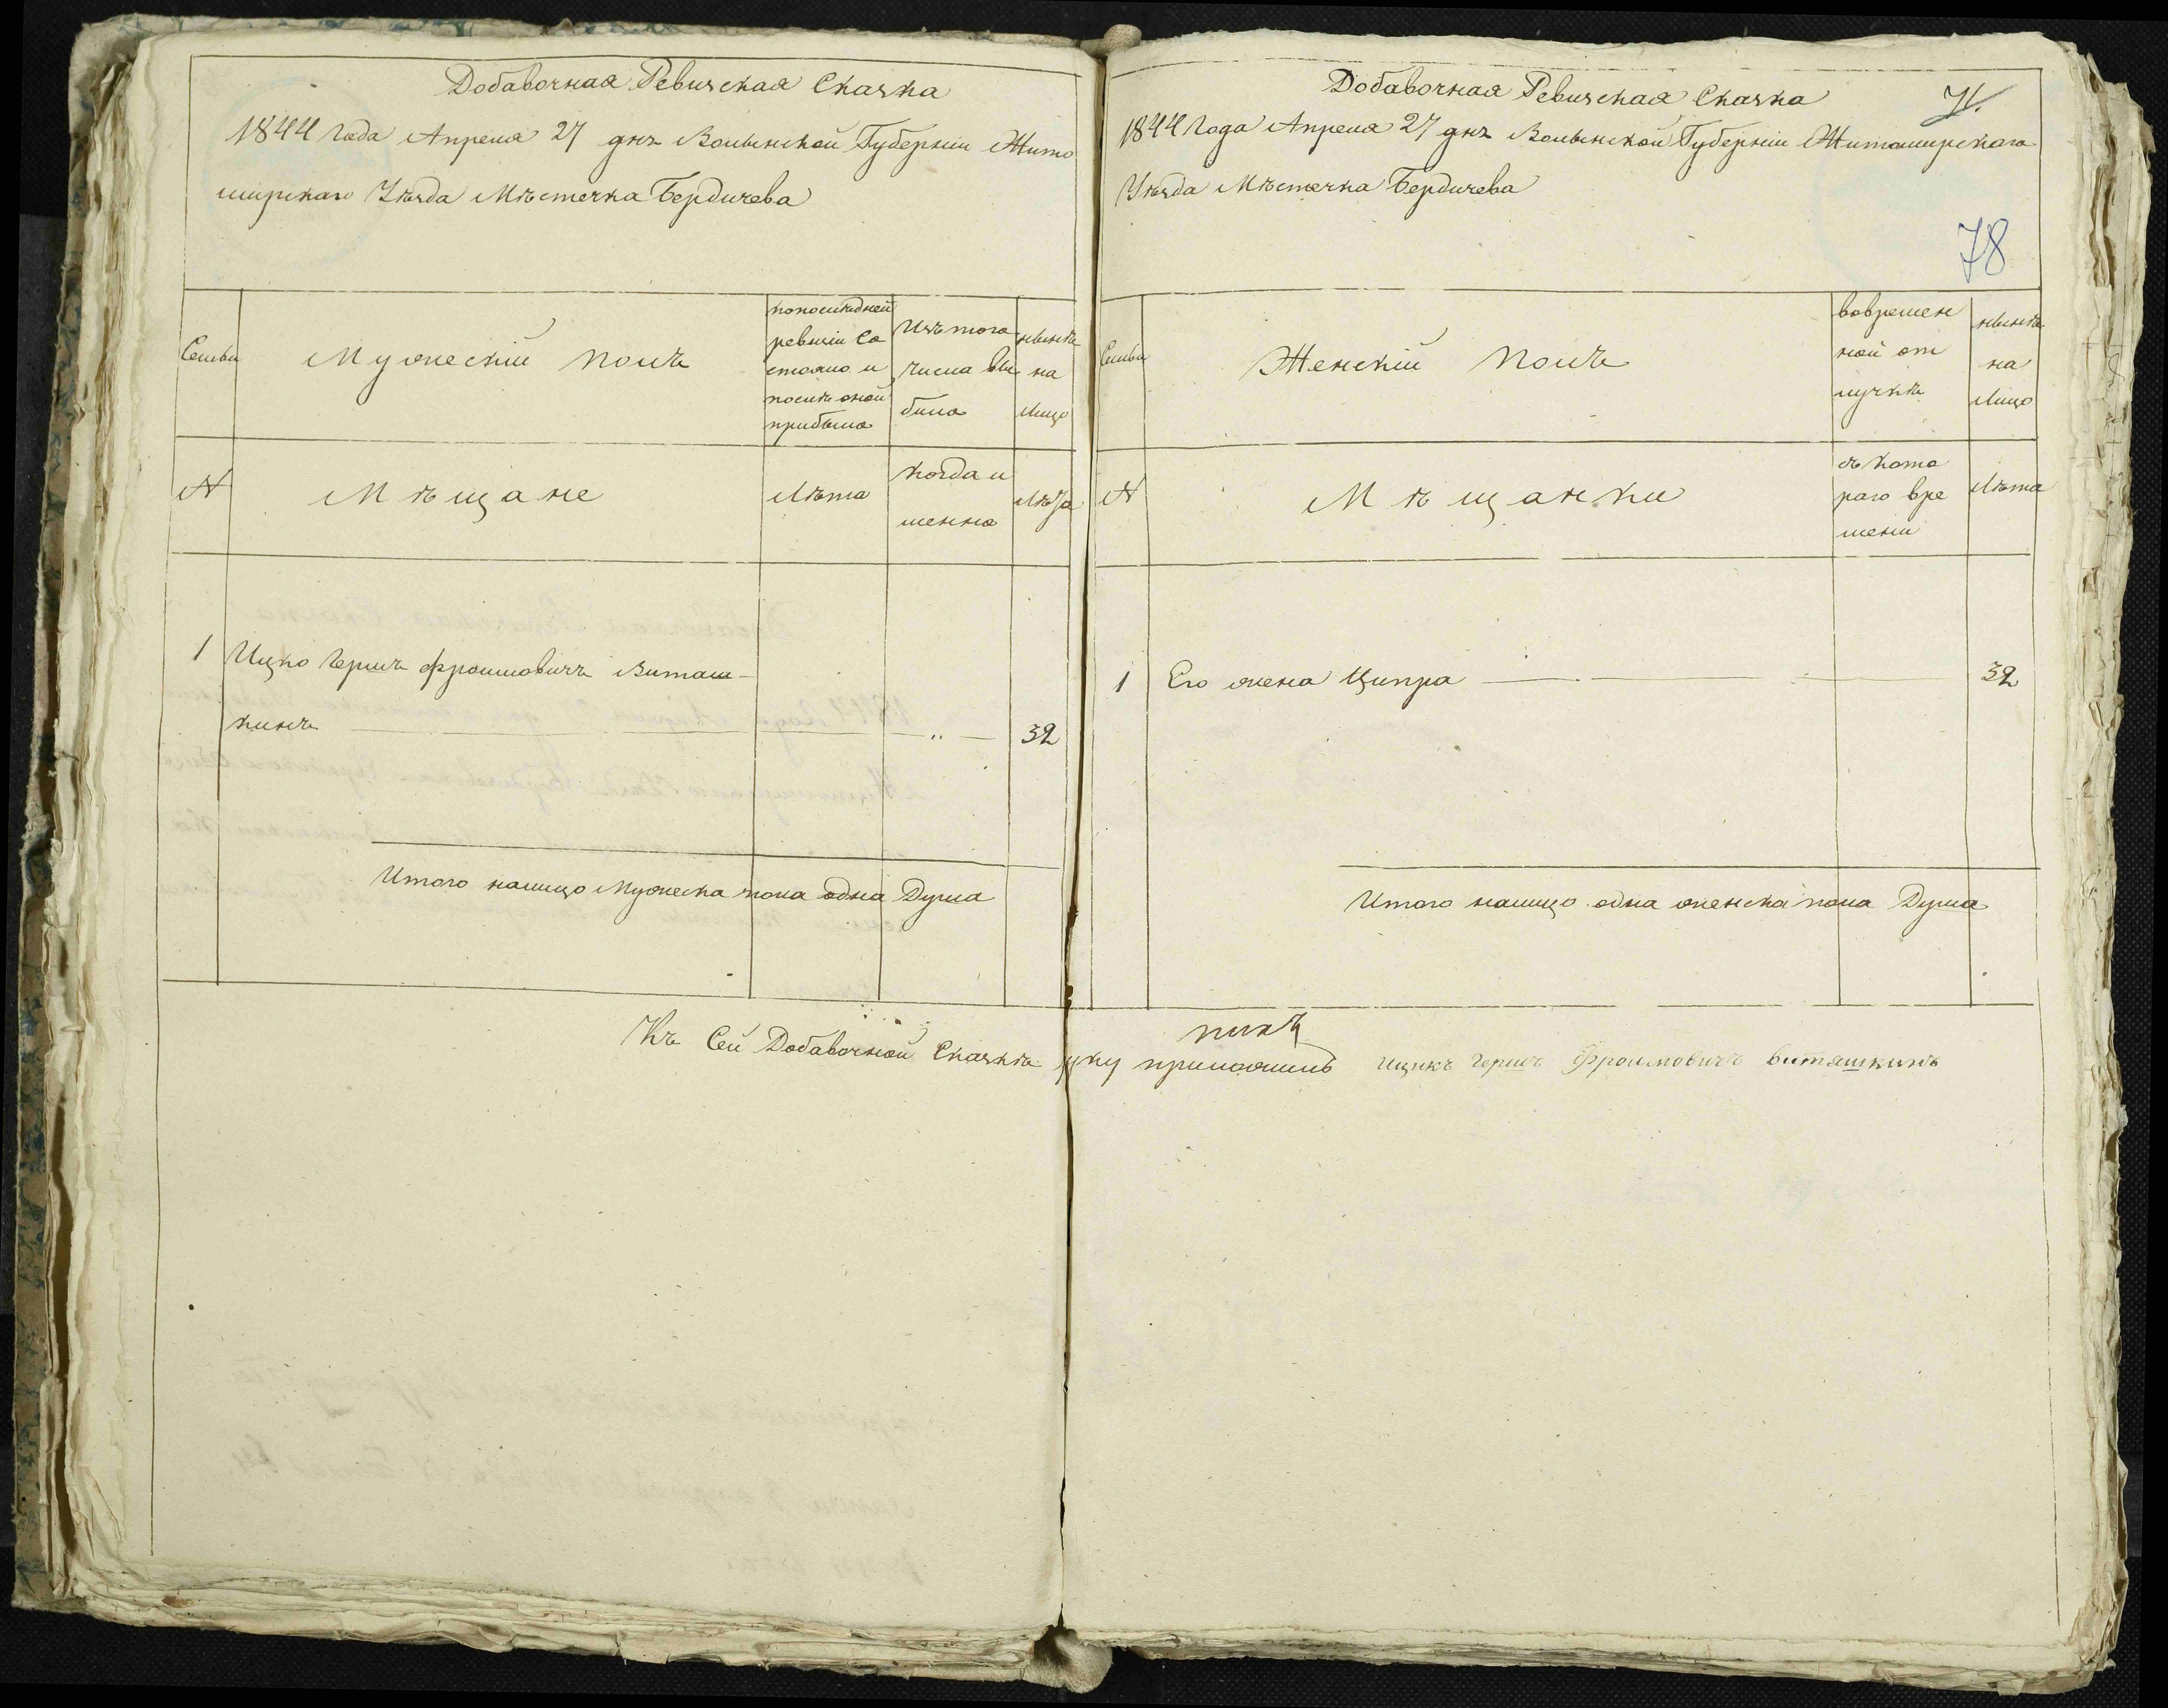 Добавочная Ревизская Сказка
1844 Года Апреля 27 дня Волынской Губерніи Жито
мирскаго Уезда Мѣстечка Бердичева
Семьи
Мужескій полъ
попоследней
ревизіи со
стояло и
послѣ оной
прибыло
Изъ того
числа вы
было
нынѣ
на
Лицо
N
Мѣщане
Лѣта
когда и
менно
Лѣта
1
Ицко Гершъ Фроимовичъ Виташ-
кинъ
"
32
Итого налицо Мужеска пола одна Душа
Добавочная Ревизская Сказка
1844 Года Апреля 27 дня Волынской Губерніи Житомирскаго
Уезда Мѣстечка Бердичева
78
Семьи
Женскій полъ
вовремен
ной от
лучкѣ
нынѣ
на
Лицо
N
Мѣщанки
съ кото
раго вре
мени
Лѣта
1
Его жена Ципра
32
Итого налицо одна женска пола Душа
Къ Сей Добавочной Сказкѣ руку приложилъ ицикъ гершъ Фроимовичъ витяшкинъ